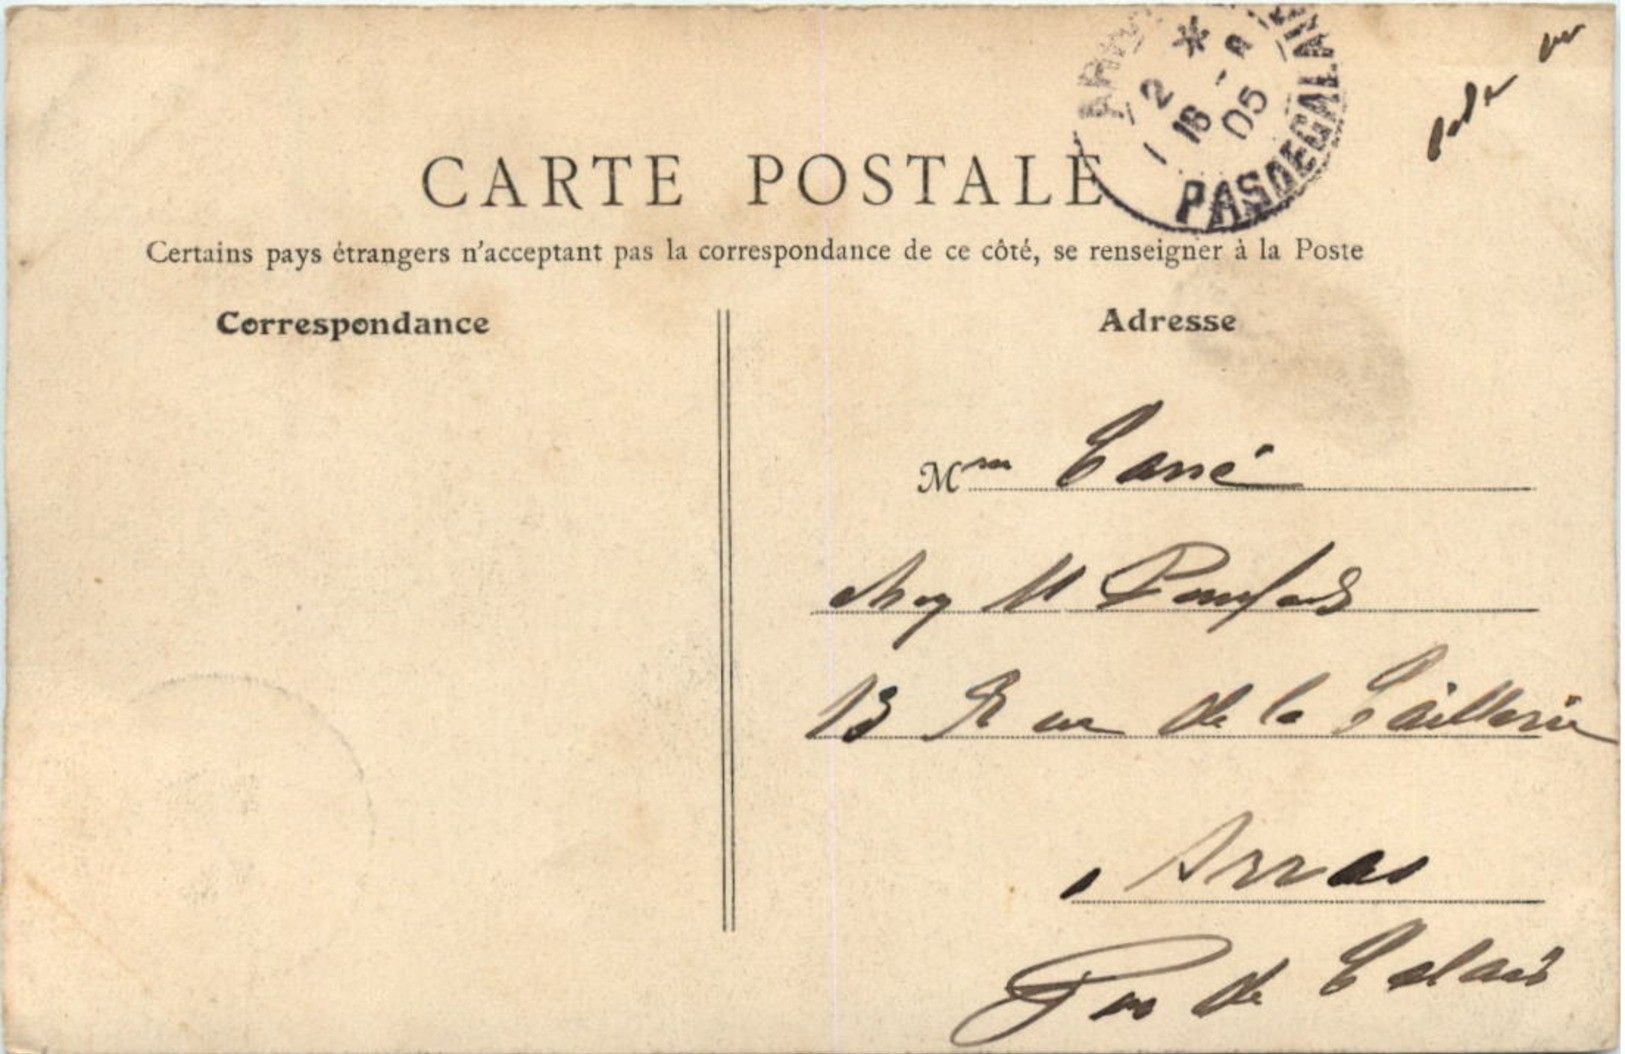 ARR
2 *
16 - 8
05
PAS DE CALAIS
CARTE POSTALE
Certains pays étrangers n'acceptant pas la correspondance de ce côté, se renseigner à la Poste
Correspondance
Adresse
Mme
chez M
13 Rue de la Taillerie
Arras
Pas de Calais